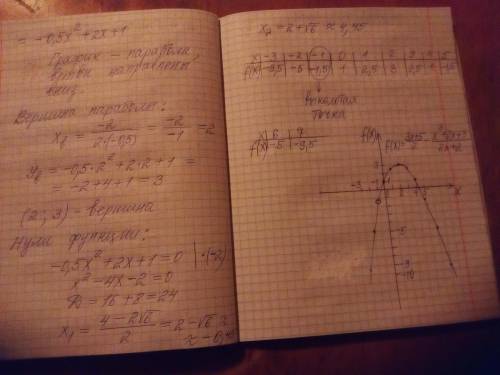 = -0,5x² + 2x + 1
График – парабола,
ветви направлены
вниз.
Вершина параболы:
x₈ = -2/(2·(-0,5)) = -2/-1 = 2
y₈ = -0,5·2² + 2·2 + 1 =
= -2 + 4 + 1 = 3
(2; 3) – вершина
Нули функции:
-0,5x² + 2x + 1 = 0 | ·(-2)
x² - 4x - 2 = 0
D = 16 + 8 = 24
x₁ = (4 - 2√6)/2 = 2 - √6 ≈
x₂ = 2 + √6 ≈ 4,45
x | -3 | -2 | -1 | 0 | 1 | 2 | 3 | 4 | 5
f(x) | -9,5 | -5 | -1,5 | 1 | 2,5 | 3 | 2,5 | 1 | -1,5
выколотая
точка
x | 6 | 7
f(x) | -5 | -9,5
f(x)
3
-3 -1
0
4 5
x
-5
-10